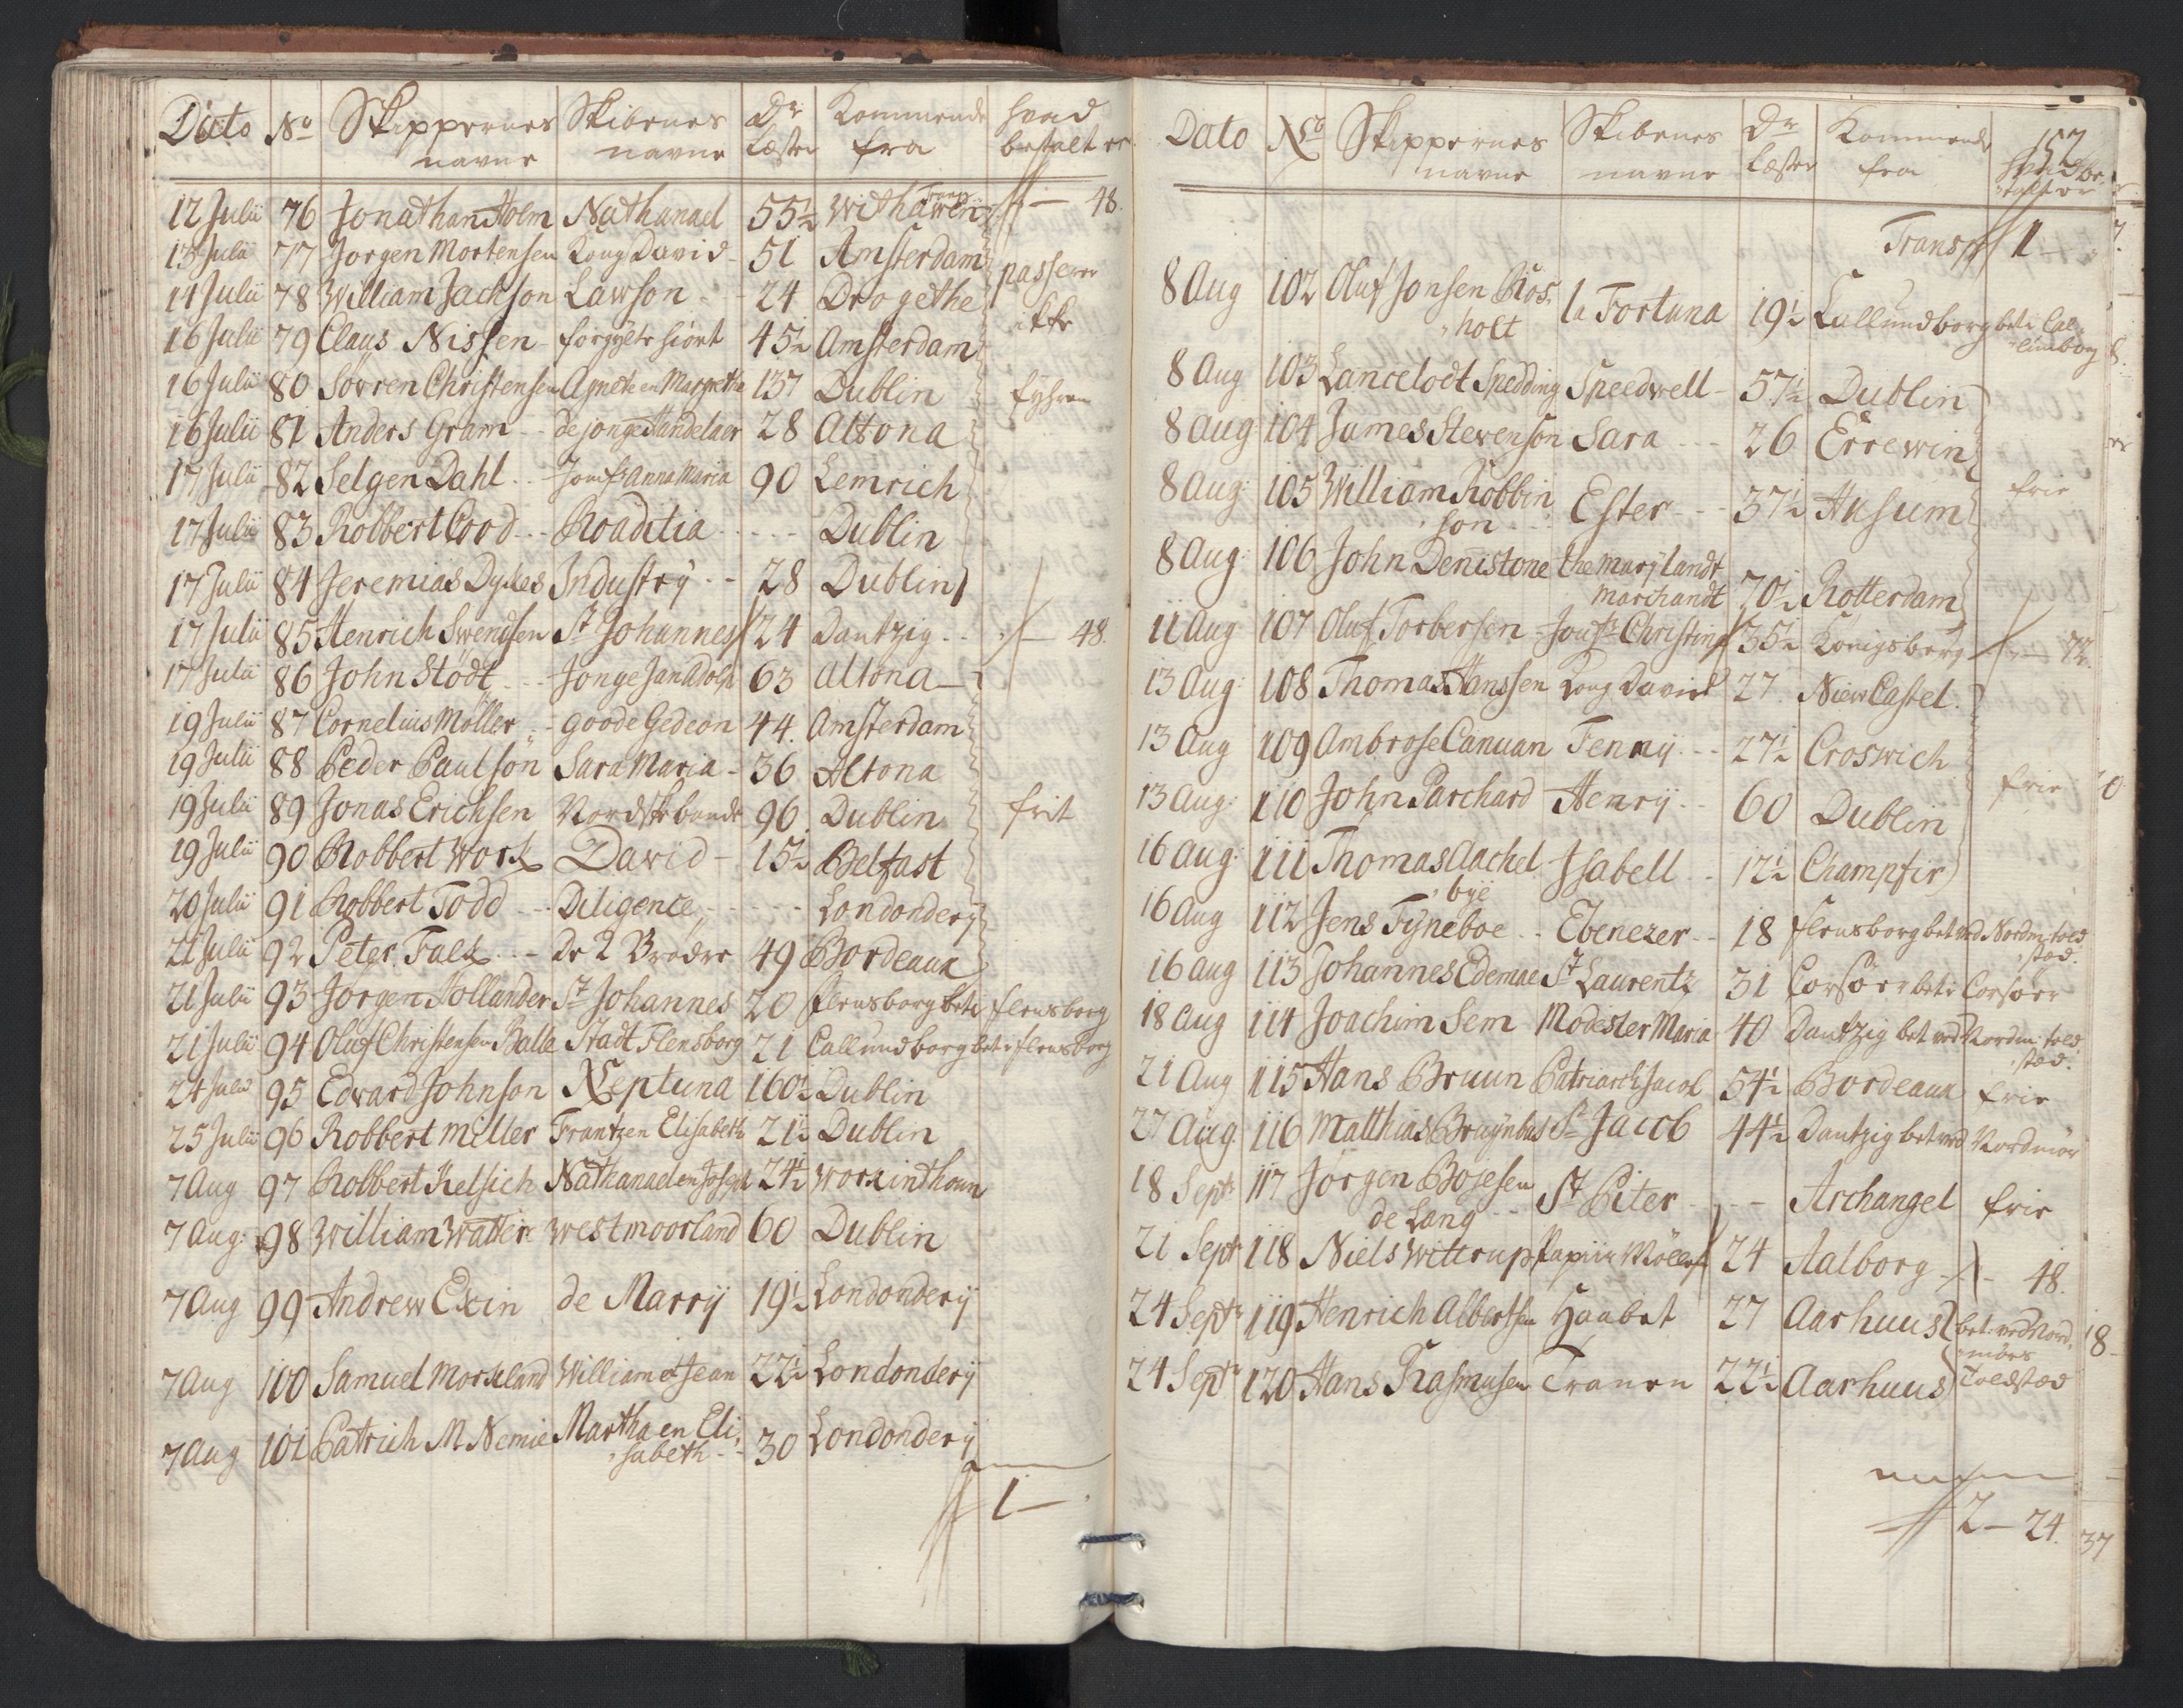 Dato No Skippernes navne Skibenes navne Dr Læster Kommende fra hvad betalt er
12 Julii 76 Jonathan Holm Nathanael 55½ Withawen 48.
13 Julii 77 Jorgen Mortensen Kong David 51 Amsterdam passerer
14 Julii 78 William Jackson Lawson 24 Drogethe ikke
16 Julii 79 Claus Nissen forgylte hiort 45½ Amsterdam
16 Julii 80 Sörren Christensen Agnete en Margretha 137 Dublin fyhren
16 Julii 81 Anders Gram de jonge Handelaer 28 Altona
17 Julii 82 Selgen Dahl Jomfr Anna Maria 90 Lemrich
17 Julii 83 Robbert Cood Roaditia Dublin
17 Julii 84 Jeremias Dykes Industry 28 Dublin
17 Julii 85 Henrich Swendsen St Johannes 24 Dantzig 48.
17 Julii 86 John Stödt Jonge Jan Adolph 63 Altona
19 Julii 87 Cornelius Möller goode Gedeon 44. Amsterdam
19 Julii 88 Peder Paulson Sara Maria 36 Altona
19 Julii 89 Jonas Erichsen Nordske bonde 96 Dublin frit
19 Julii 90 Robbert Work David 15½ Belfast
20 Julii 91 Robbert Todd Diligence Londondery
21 Julii 92 Peter Falk De 2 Brödre 49 Bordeaux
21 Julii 93 Jörgen Hollander St Johannes 20 flensborg bet i flensborg
21 Julii 94 Oluf Christensen Balle Stadt Flensborg 21 Callundborg bet i flensborg
24 Julii 95 Edvard Johnson Neptuna 160½ Dublin
25 Julii 96 Robbert Miller Frantz en Elisabeth 21½ Dublin
7 Aug 97 Robbert Kelsich Nathanael en Joseph 24½ Workinthoun
7 Aug: 98 William Watter Westmoorland 60 Dublin
7 Aug 99 Andrew Exin de Marrÿ 19½ Londonderÿ
7 Aug 100 Samuel Morkland William et Jean 22½ Londonderÿ
7 Aug 101 Patrich M Nemie Martha en Eli
sabeth 30 Londonderÿ
1 —
Dato No Skippernes navne Skibenes navne Dr Læster Kommende fra hvad betalt er
157
Transp 1 —
8 Aug 102 Oluf Jonsen Ros
holt la Fortuna 19½ Callundborg bet i Cal
lundborg
8 Aug 103 Lancelodt Spedding Speedwell 57½ Dublin
8 Aug 104 James Stevenson Sara 26 Errewin
8 Aug: 105 William Robbin
son Ester 37½ Husum frie
8 Aug: 106 John Denistone the marylandt
marchandt 70½ Rotterdam
11 Aug 107 Oluf Torbersen Jomfr Christina 35½ Konigsberg 72.
13 Aug: 108 Thomas Hanssen Kong David 27. Niew Castel.
13 Aug 109 Ambrose Canuan Fennij 27½ Croswich
13 Aug: 110 John Parchard Henrij 60 Dublin frie
16 Aug: 111 Thomas Aachel
bye Isabell 12½ Champfir
16 Aug 112 Jens Fyneboe Ebenezer 18 flensborg bet ved Nordm: told
sted.
16 Aug 113 Johannes Edemae St Laurentz 31 Corsöer bet i Corsöer
18 Aug 114 Joachim Sem Modester Maria 40 Dantzig bet ved Nordm: told
sted.
21 Aug 115 Hans Bruun Patriarch Jacob 54½ Bordeaux frie
27 Aug 116 Matthias Bruÿnbus St Jacob 44½ Dantzig bet ved Nordmör
18 Septr 117 Jørgen Bojesen
de Lang St Piter Archangel frie
21 Septr 118 Niels Wittrup Papiir Möllen 24 Aalborg 48.
24 Septr 119 Henrich Albertsen Haabet 27 Aarhuus bet: ved Nord
mörs
24 Septr 120 Hans Rasmusen Tranen 22½ Aarhuus Toldsted
2 — 24.
37